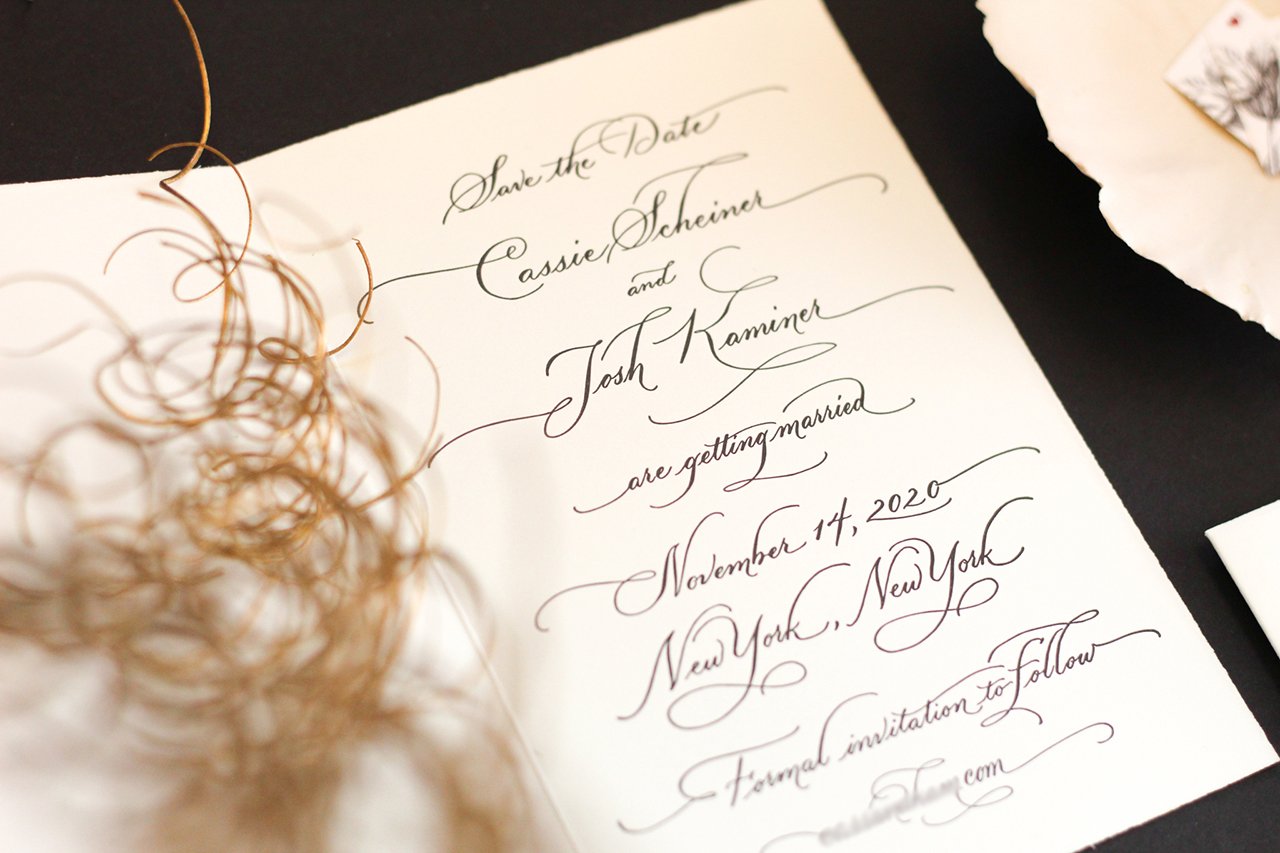 Save the Date
Cassie Scheiner
and
Josh Kaminer
are getting married
November 14, 2020
New York, New York
Formal invitation to Follow
com